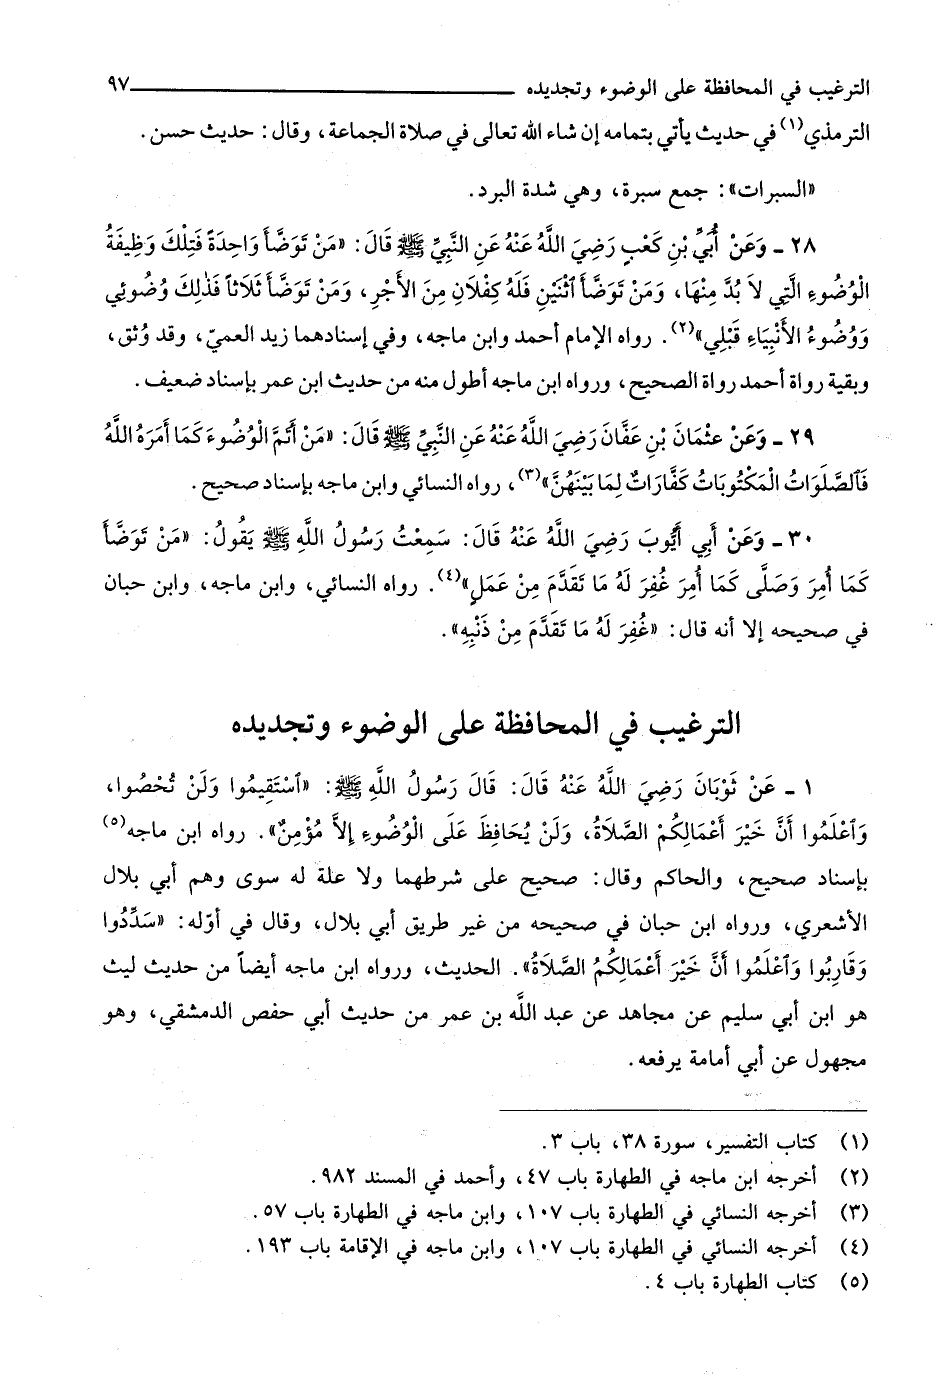 الترغيب في المحافظة على الوضوء وتجديده ــــــــــــــــــــــــــــــــــــ ٩٧
الترمذي(١) في حديث يأتي بتمامه إن شاء الله تعالى في صلاة الجماعة، وقال: حديث حسن.
«السبرات»: جمع سبرة، وهي شدة البرد.
٢٨ ـ وَعَنْ أُبَيِّ بْنِ كَعْبٍ رَضِيَ اللَّهُ عَنْهُ عَنِ النَّبِيِّ ﷺ قَالَ: «مَنْ تَوَضَّأَ وَاحِدَةً فَتِلْكَ وَظِيفَةُ
الْوُضُوءِ الَّتِي لاَ بُدَّ مِنْهَا، وَمَنْ تَوَضَّأَ ٱثْنَيْنِ فَلَهُ كِفْلاَنِ مِنَ الأَجْرِ، وَمَنْ تَوَضَّأَ ثَلاَثاً فَذٰلِكَ وُضُوئِي
وَوُضُوءُ الأَنْبِيَاءِ قَبْلِي»(٢). رواه الإمام أحمد وابن ماجه، وفي إسنادهما زيد العميّ، وقد وُثق،
وبقية رواة أحمد رواة الصحيح، ورواه ابن ماجه أطول منه من حديث ابن عمر بإسناد ضعيف.
٢٩ ـ وَعَنْ عثْمَانَ بْنِ عَفَّانَ رَضِيَ اللَّهُ عَنْهُ عَنِ النَّبِيِّ ﷺ قَالَ: «مَنْ أَتَمَّ الْوُضُوءَ كَمَا أَمَرَهُ اللَّهُ
فَٱلصَّلَوَاتُ الْمَكْتُوبَاتُ كَفَّارَاتٌ لِمَا بَيْنَهُنَّ»(٣)، رواه النسائي وابن ماجه بإسناد صحيح.
٣٠ ـ وَعَنْ أَبِي أَيُّوبَ رَضِيَ اللَّهُ عَنْهُ قَالَ: سَمِعْتُ رَسُولُ اللَّهِ ﷺ يَقُولُ: «مَنْ تَوَضَّأَ
كَمَا أُمِرَ وَصَلَّى كَمَا أُمِرَ غُفِرَ لَهُ مَا تَقَدَّمَ مِنْ عَمَلٍ»(٤). رواه النسائي، وابن ماجه، وابن حبان
في صحيحه إلا أنه قال: «غُفِرَ لَهُ مَا تَقَدَّمَ مِنْ ذَنْبِهِ».
الترغيب في المحافظة على الوضوء وتجديده
١ ـ عَنْ ثَوْبَانَ رَضِيَ اللَّهُ عَنْهُ قَالَ: قَالَ رَسُولُ اللَّهِ ﷺ: «ٱسْتَقِيمُوا وَلَنْ تُحْصُوا،
وَٱعْلَمُوا أَنَّ خَيْرَ أَعْمَالِكُمْ الصَّلاَةُ، وَلَنْ يُحَافِظَ عَلَى الْوُضُوءِ إِلاَّ مُؤْمِنٌ». رواه ابن ماجه(٥)
بإسناد صحيح، والحاكم وقال: صحيح على شرطهما ولا علة له سوى وهم أبي بلال
الأشعري، ورواه ابن حبان في صحيحه من غير طريق أبي بلال، وقال في أوّله: «سَدِّدُوا
وَقَارِبُوا وَٱعْلَمُوا أَنَّ خَيْرَ أَعْمَالِكُمُ الصَّلاَةُ». الحديث، ورواه ابن ماجه أيضاً من حديث ليث
هو ابن أبي سليم عن مجاهد عن عبد اللَّه بن عمر من حديث أبي حفص الدمشقي، وهو
مجهول عن أبي أمامة يرفعه.
(١) كتاب التفسير، سورة ٣٨، باب ٣.
(٢) أخرجه ابن ماجه في الطهارة باب ٤٧، وأحمد في المسند ٩٨٢.
(٣) أخرجه النسائي في الطهارة باب ١٠٧، وابن ماجه في الطهارة باب ٥٧.
(٤) أخرجه النسائي في الطهارة باب ١٠٧، وابن ماجه في الإقامة باب ١٩٣.
(٥) كتاب الطهارة باب ٤.